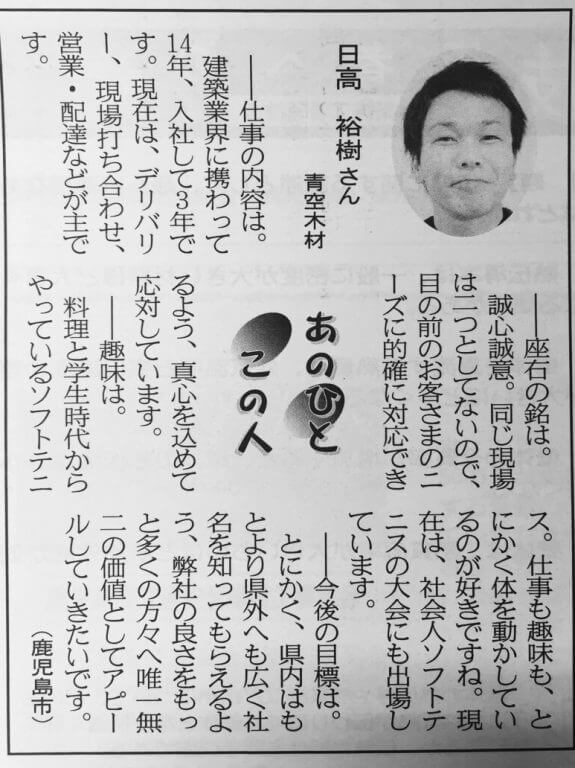 日高 裕樹さん
青空木材
――仕事の内容は。
建築業界に携わって
14年、入社して3年で
す。現在は、デリバリ
ー、現場打ち合わせ、
営業・配達などが主で
す。
あのひと
この人
――座右の銘は。
誠心誠意。同じ現場
は二つとてないので、
目の前のお客さまのニ
ーズに的確に対応でき
るよう、真心を込めて
応対しています。
――趣味は。
料理と学生時代から
やっているソフトテニ
ス。仕事も趣味も、と
にかく体を動かしてい
るのが好きですね。現
在は、社会人ソフトテ
ニスの大会にも出場し
ています。
――今後の目標は。
とにかく、県内はも
とより県外へも広く社
名を知ってもらえるよ
う、弊社の良さをもっ
と多くの方々へ唯一無
二の価値としてアピー
ルしていきたいです。
（鹿児島市）